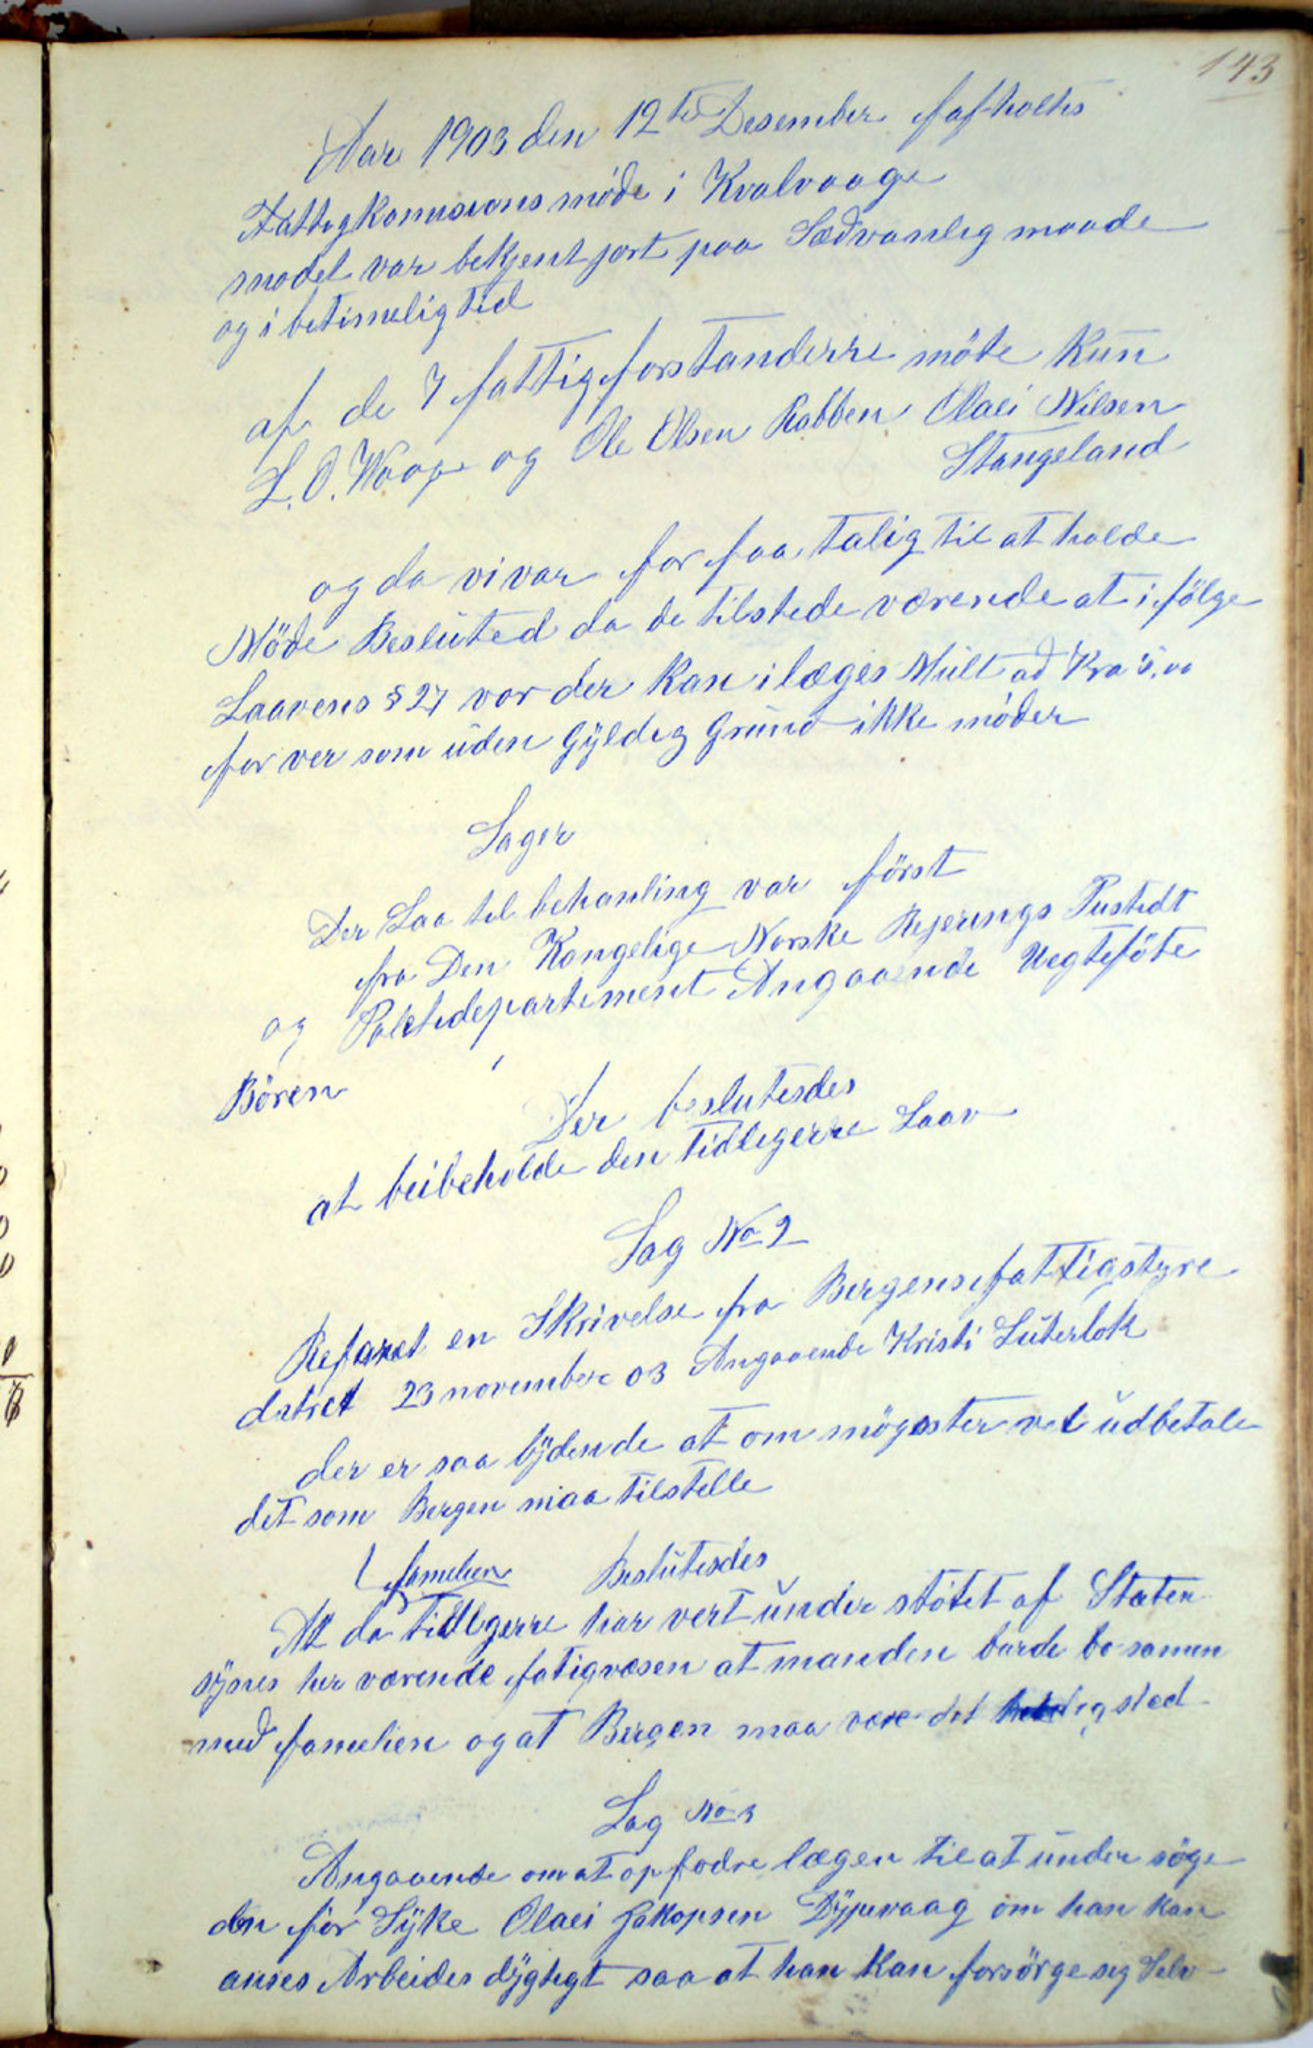 143
Aar 1903 den 12te Desember fafholtes
Fattigkomisions møde i Kvalvaage
model var bekjentjort paa Sædvanlig maade
og i betimelig tid
af de 7 fattigforstanderre möte Kun
L. O. Waage og Ole Olsen Rabben Olaei Nilsen
Stangeland
og da vi var for faa talig til at holde
Möde Besluted da de tilstede værende at ifölge
Laavens § 27 vor der Kan ilæges Mult ad Kra 5.00
for ver som uden Gyldig Grund ikke möder
Sager
Der Laa til behanling var först
fra Den Kongelige Norske Rejerings Justidt
og Politidepartement Angaaende Uegteföte
Bören
Der beslutesdes
at beibeholde den tidligerre Laav
Sag No 2
Referet en Skrivelse fra Bergensefattigstyre
datret 23 november 03 Angaaende Kristi Luterlok
der er saa lydende at om mögster vel udbetale
det som Bergen maa tilstelle
familien Beslutesdes
At da tidligerre har vert under stötet af Staten
synes her værende fatigvæsen at manden burde bo samen
med familien og at Bergen maa være det sted
Sag No 3
Angaaende om at opfodre lægen til at under söge
den för Syke Olaei Jakopsen Dypevaag om han kan
anses Arbeides dygtigt saa at han Kan forsörge sig Selv